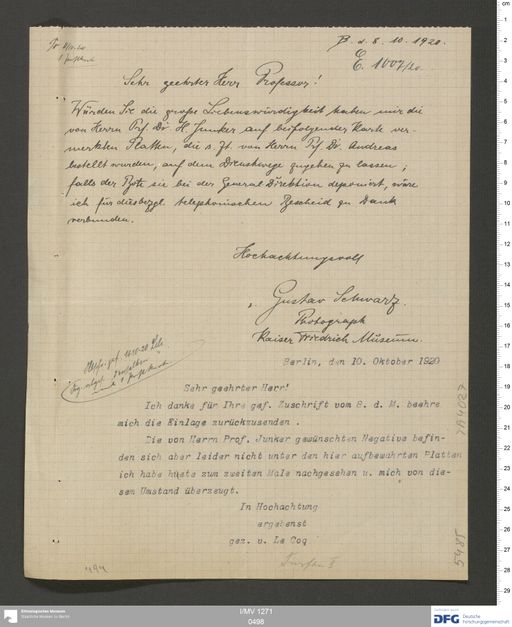 B. d. 8. 10. 1920.
E. 1007/20
Sehr geehrter Herr Professor!
Würden Sie die große Liebenswürdigkeit haben mir die
von Herrn Prof. Dr. H. Junker auf beifolgender Karte ver-
merkten Platten, die s. Zt. von Herrn Prf. Dr. Andreas
bestellt wurden, auf dem Dienstwege zugehen zu lassen;
falls der Bote sie bei der General Direktion deponiert, wäre
ich für diesbezgl. telephonischen Bescheid zu Dank
verbunden.
Hochachtungsvoll
Gustav Schwarz.
Photograph
Kaiser Friedrich Museum.
Berlin, den 10. Oktober 1920
Sehr geehrter Herr!
Ich danke für Ihre gef. Zuschrift vom 8. d. M. beehre
mich die Einlage zurückzusenden .
Die von Herrn Prof. Junker gewünschten Negative befin-
den sich aber leider nicht unter den hier aufbewahrten Platten
ich habe heute zum zweiten Male nachgesehen u. mich von die-
sem Umstand überzeugt.
In Hochachtung
ergebenst
gez. v. Le Coq
Turfan II
5485
I/MV 1271
0498
Ethnologisches Museum
Staatliche Museen zu Berlin
DFG
Deutsche
Forschungsgemeinschaft
cm
1
2
3
4
5
6
7
8
9
10
11
12
13
14
15
16
17
18
19
20
21
22
23
24
25
26
27
28
29